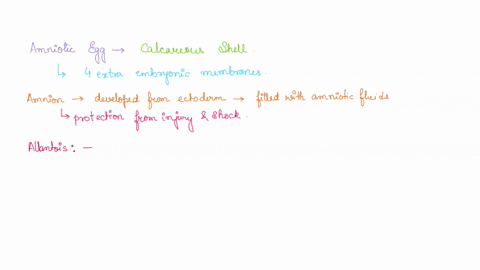 Amniotic Egg → Calcareous Shell.
↳ 4 extra embryonic membranes.
Amnion → developed from ectoderm → filled with amniotic fluids
↳ protection from injury & shock.
Allantois : —